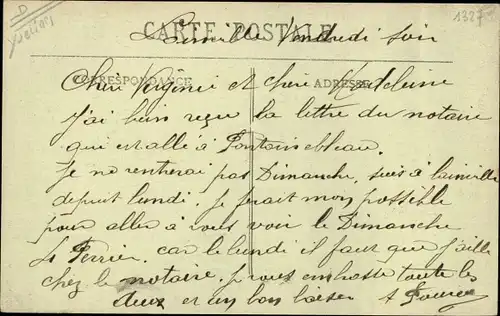 D
Yvelines
1327
CARTE POSTALE
Lainville Vendredi soir
CORRESPONDANCE
ADRESSE
Chère Virginie et chère Madeleine
j'ai bien reçu la lettre du notaire
qui est allé à Fontainebleau.
Je ne rentrerai pas Dimanche, suis à Lainville
depuis lundi. Je ferait mon possible
pour aller à vous voir le Dimanche
car le lundi il faut que j'aille
chez le notaire. je vous embrasse toute les
deux et un bon baiser